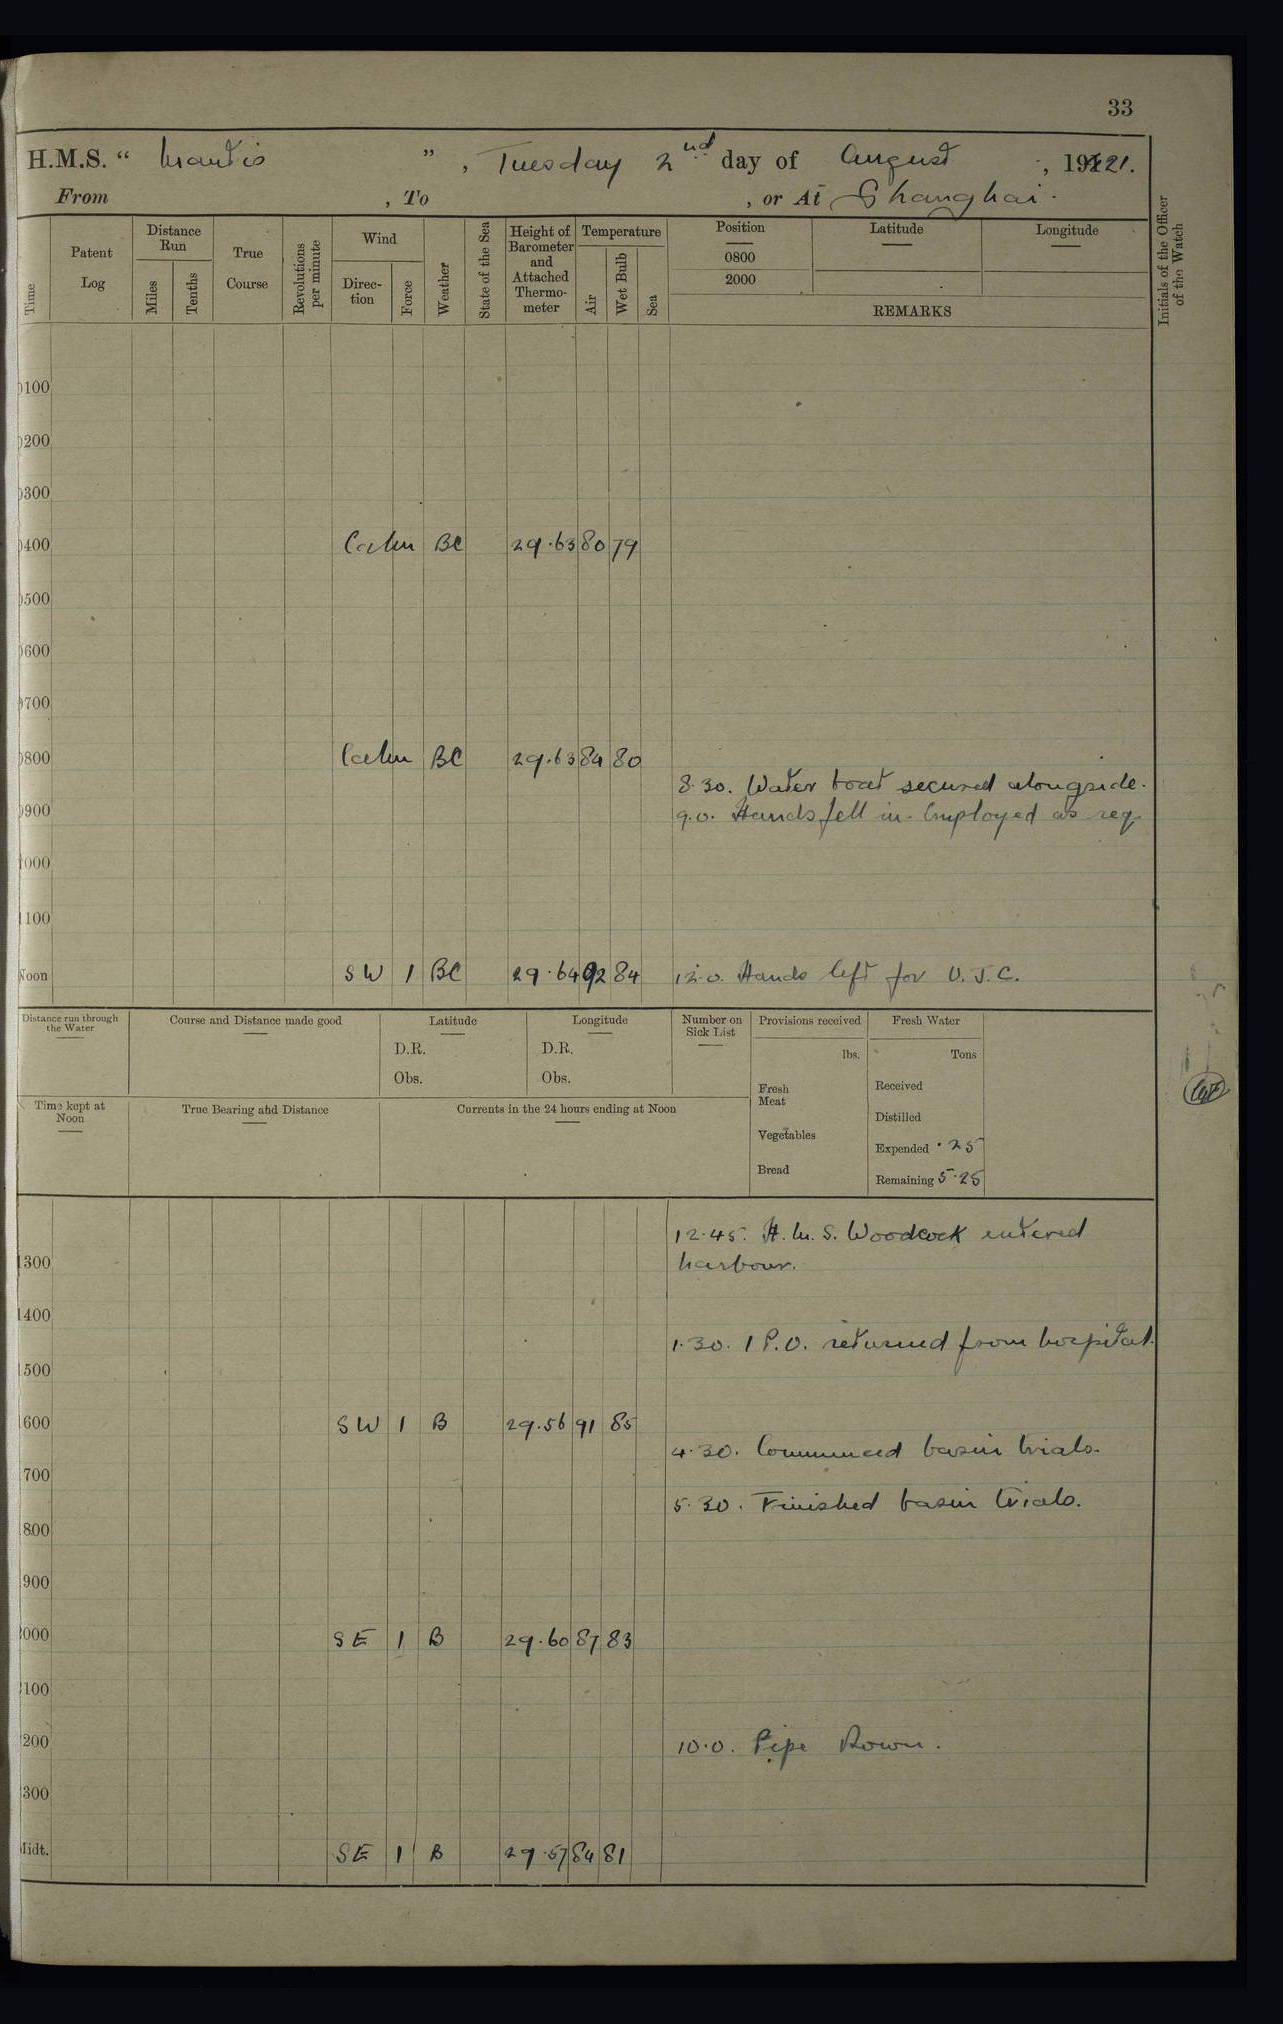 33
H.M.S. " Mantis ", Tuesday 2nd day of August, 1921.
From , To , or At Shanghai.
Time
Patent Log
Distance Run
Miles
Tenths
True Course
Revolutions per minute
Wind
Direction
Force
Weather
State of the Sea
Height of Barometer and Attached Thermometer
Temperature
Air
Wet Bulb
Sea
Position
0800
2000
Latitude
Longitude
REMARKS
Initials of the Officer of the Watch
0100
0200
0300
0400 Calm BC 29.63 80 79
0500
0600
0700
0800 Calm BC 29.63 84 80
8.30. Water boat secured alongside.
0900 9.0. Hands fell in. Employed as req
1000
1100
Noon SW 1 BC 29.64 92 84 12.0. Hands left for U.S.C.
Distance run through the Water
Course and Distance made good
Latitude
D.R.
Obs.
Longitude
D.R.
Obs.
Number on Sick List
Provisions received
lbs.
Fresh Meat
Vegetables
Bread
Fresh Water
Tons
Received
Distilled
Expended .25
Remaining 5.25
Time kept at Noon
True Bearing and Distance
Currents in the 24 hours ending at Noon
12.45. H.M.S. Woodcock entered
1300 harbour.
1400
1.30. 1 P.O. returned from hospital.
1500
1600 SW 1 B 29.56 91 85
4.30. Commenced basin trials.
1700
5.30. Finished basin trials.
1800
1900
2000 SE 1 B 29.60 87 83
2100
2200 10.0. Pipe Down.
2300
Midt. SE 1 B 29.57 84 81